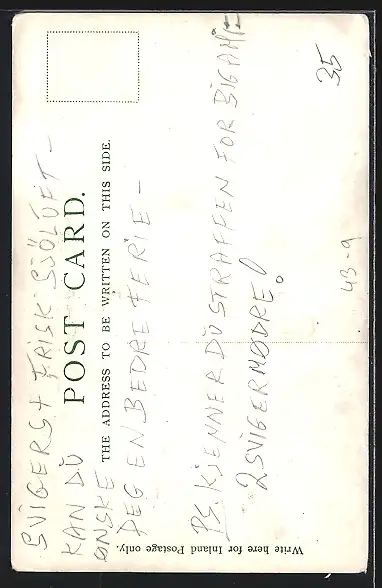 SVIGERS + FRISK SJÖLUFT -
KAN DU
ØNSKE
DEG EN BEDRE FERIE -
PS. KJENNER DU STRAFFEN FOR BIGAMIE
2 SVIGERMØDRE!
POST CARD.
THE ADDRESS TO BE WRITTEN ON THIS SIDE.
Write here for Inland Postage only.
35
43-9